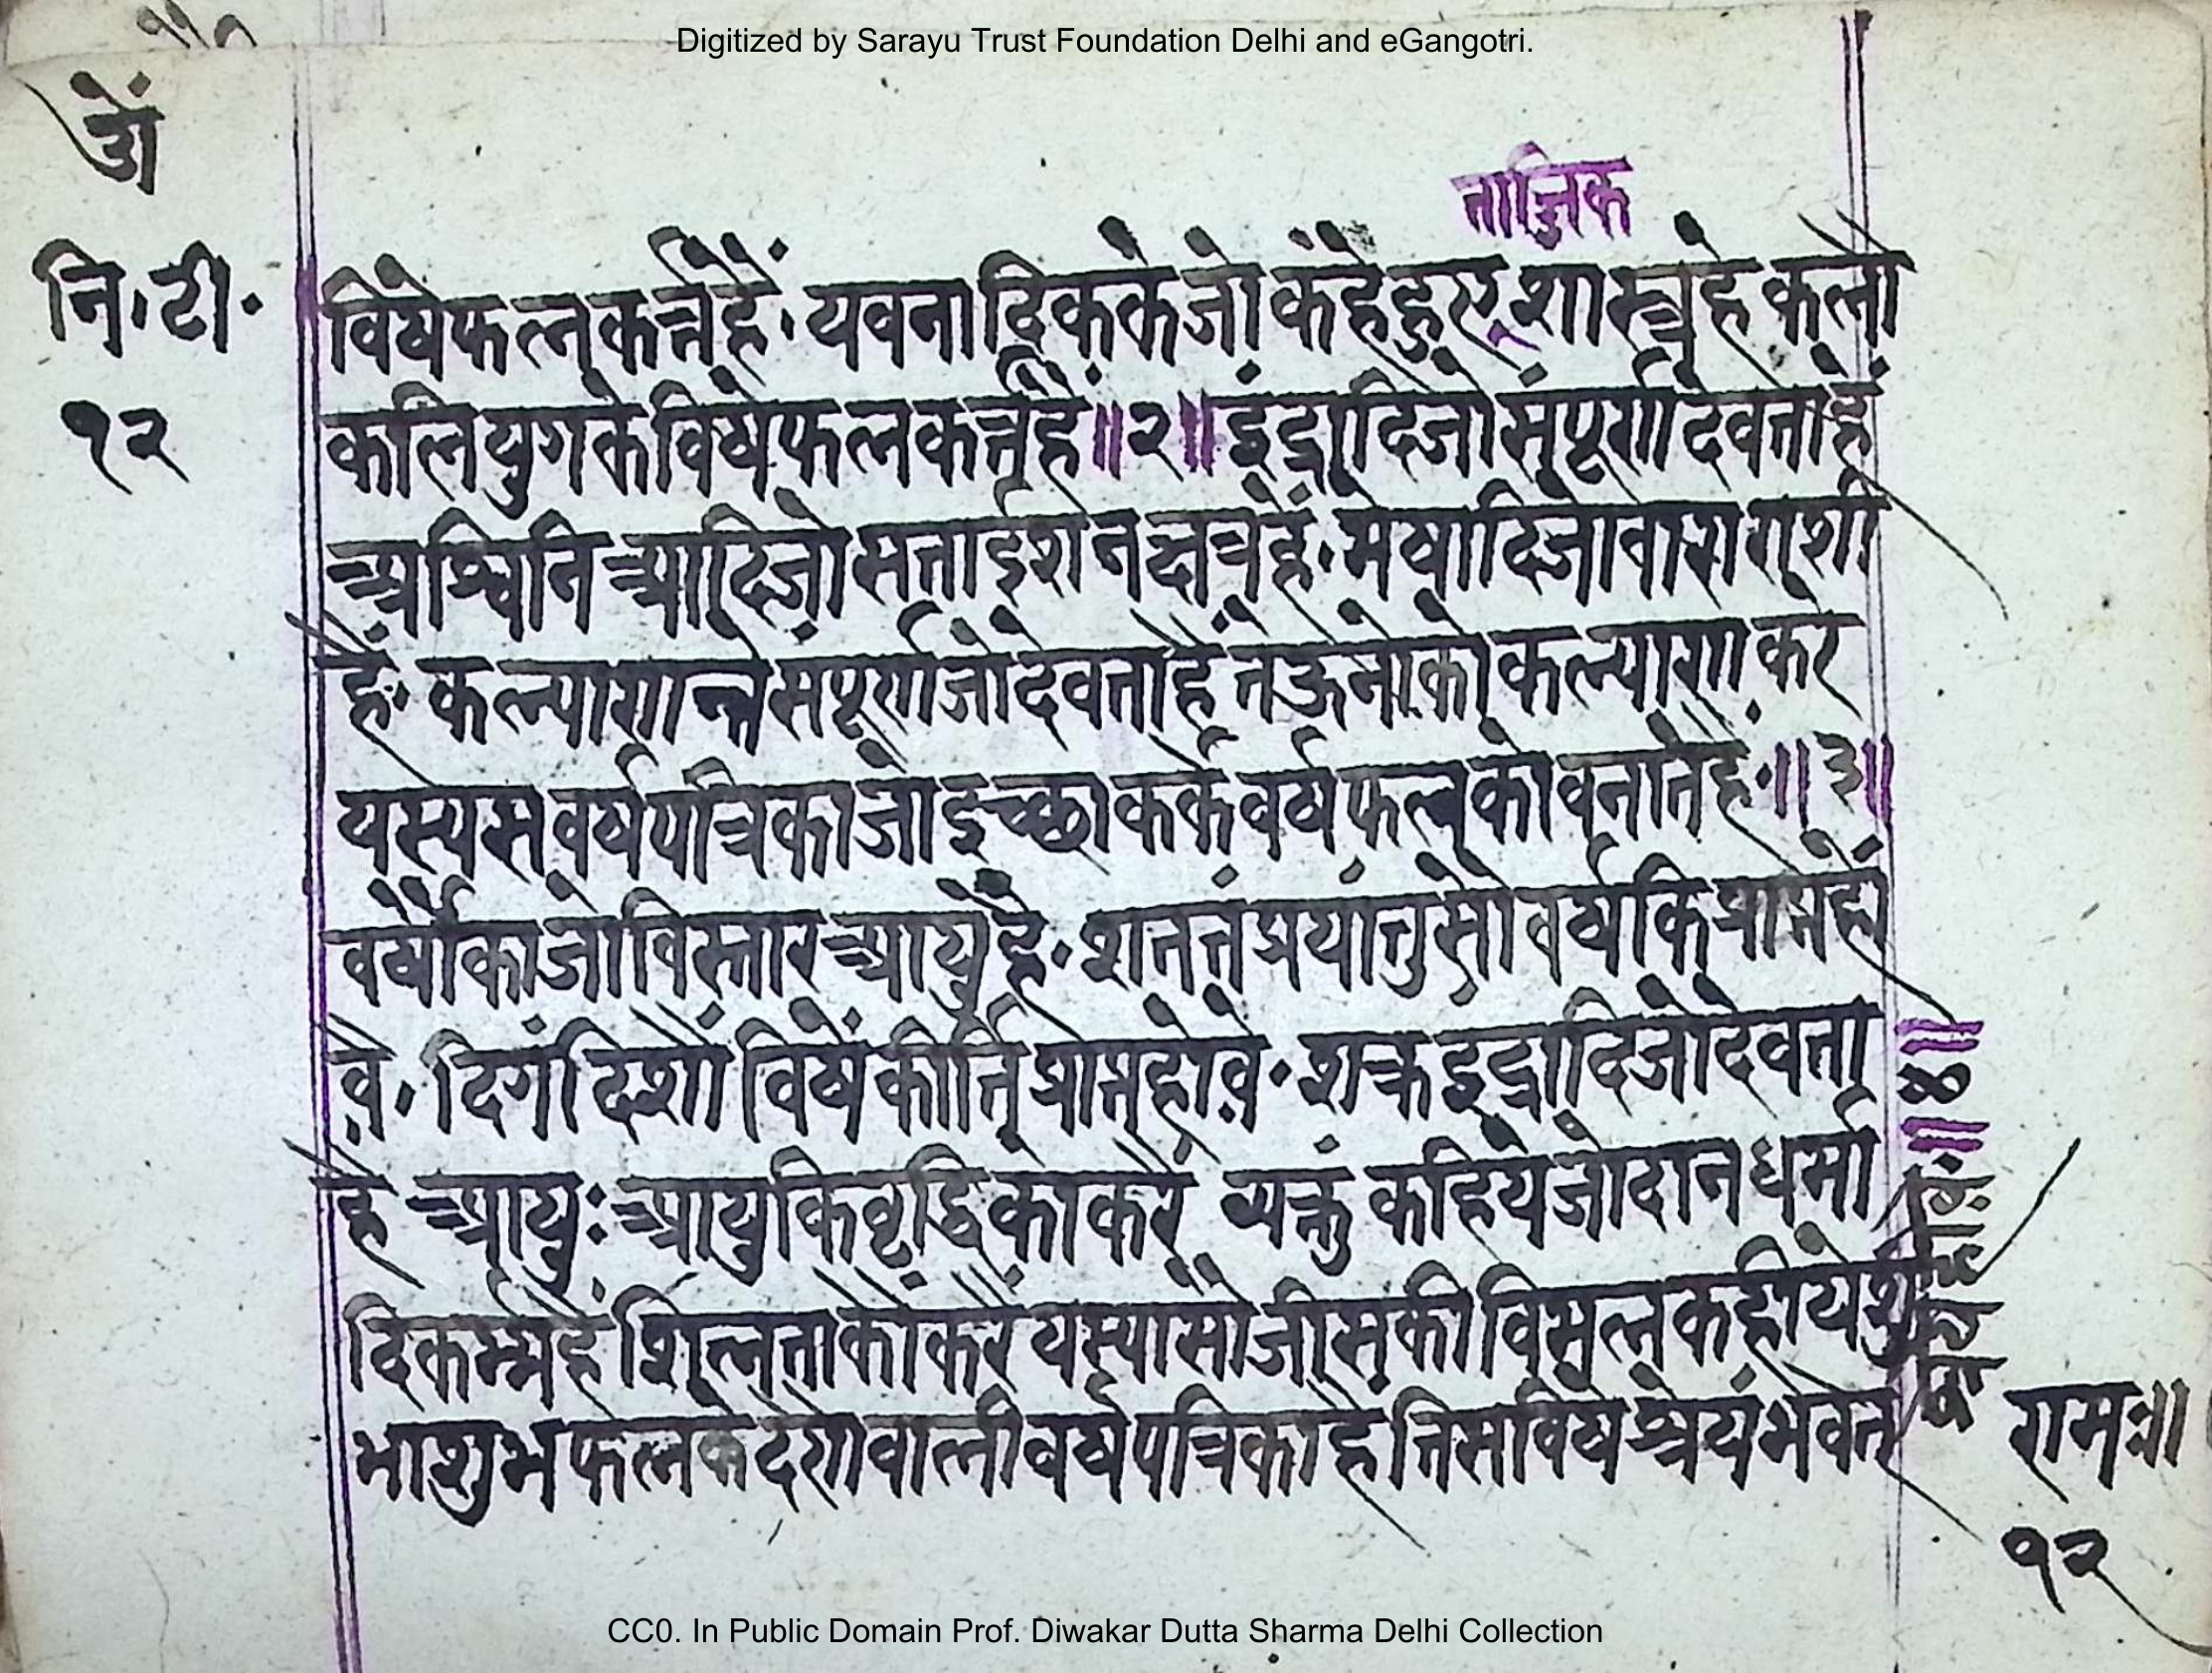 Digitized by Sarayu Trust Foundation Delhi and eGangotri.
ताजिक
नि॰टी॰
१२
विषेफलकर्त्तेहैं॰यवनादिककेजोकहेहुए शास्त्रहे कलौ
कलियुगकेविषेफलकर्त्तेहैं॥२॥इंद्रादिजोसंपूर्णदेवताहैं
अश्विनिआदिजोसत्ताईशनक्षत्रहैं॰मेषादिजोवाराराशी
हैं॰कल्याणन्तेसंपूर्णजोदेवताहैंतेऊनोकोकल्याणकरे
यस्यसवर्षपत्रिकाजोइच्छाकर्केवर्षफलकोवनातेहैं॰॥३॥
वर्षौकाजोविस्तारआयुहै॰शततंप्रयांतुसौवर्षकिप्राप्तहो
वे॰दिगंदिशोंविषेंकीर्तिप्राप्तहोवे॰शक्रइद्रादिजोदेवता
॥४॥
हैआयुःआयुकिवृद्धिकोकरें व्यक्तं कहियेजोदानधर्मा
दिकर्म्महैंशिलताकोंकरैंयस्यासौजीसकीविमलकहीयेशु
भाशुभफलकेदेणेवालीवर्षपत्रिकाहैतिसविषेश्रेयंभवेत्
राम॥
१२
CC0. In Public Domain Prof. Diwakar Dutta Sharma Delhi Collection